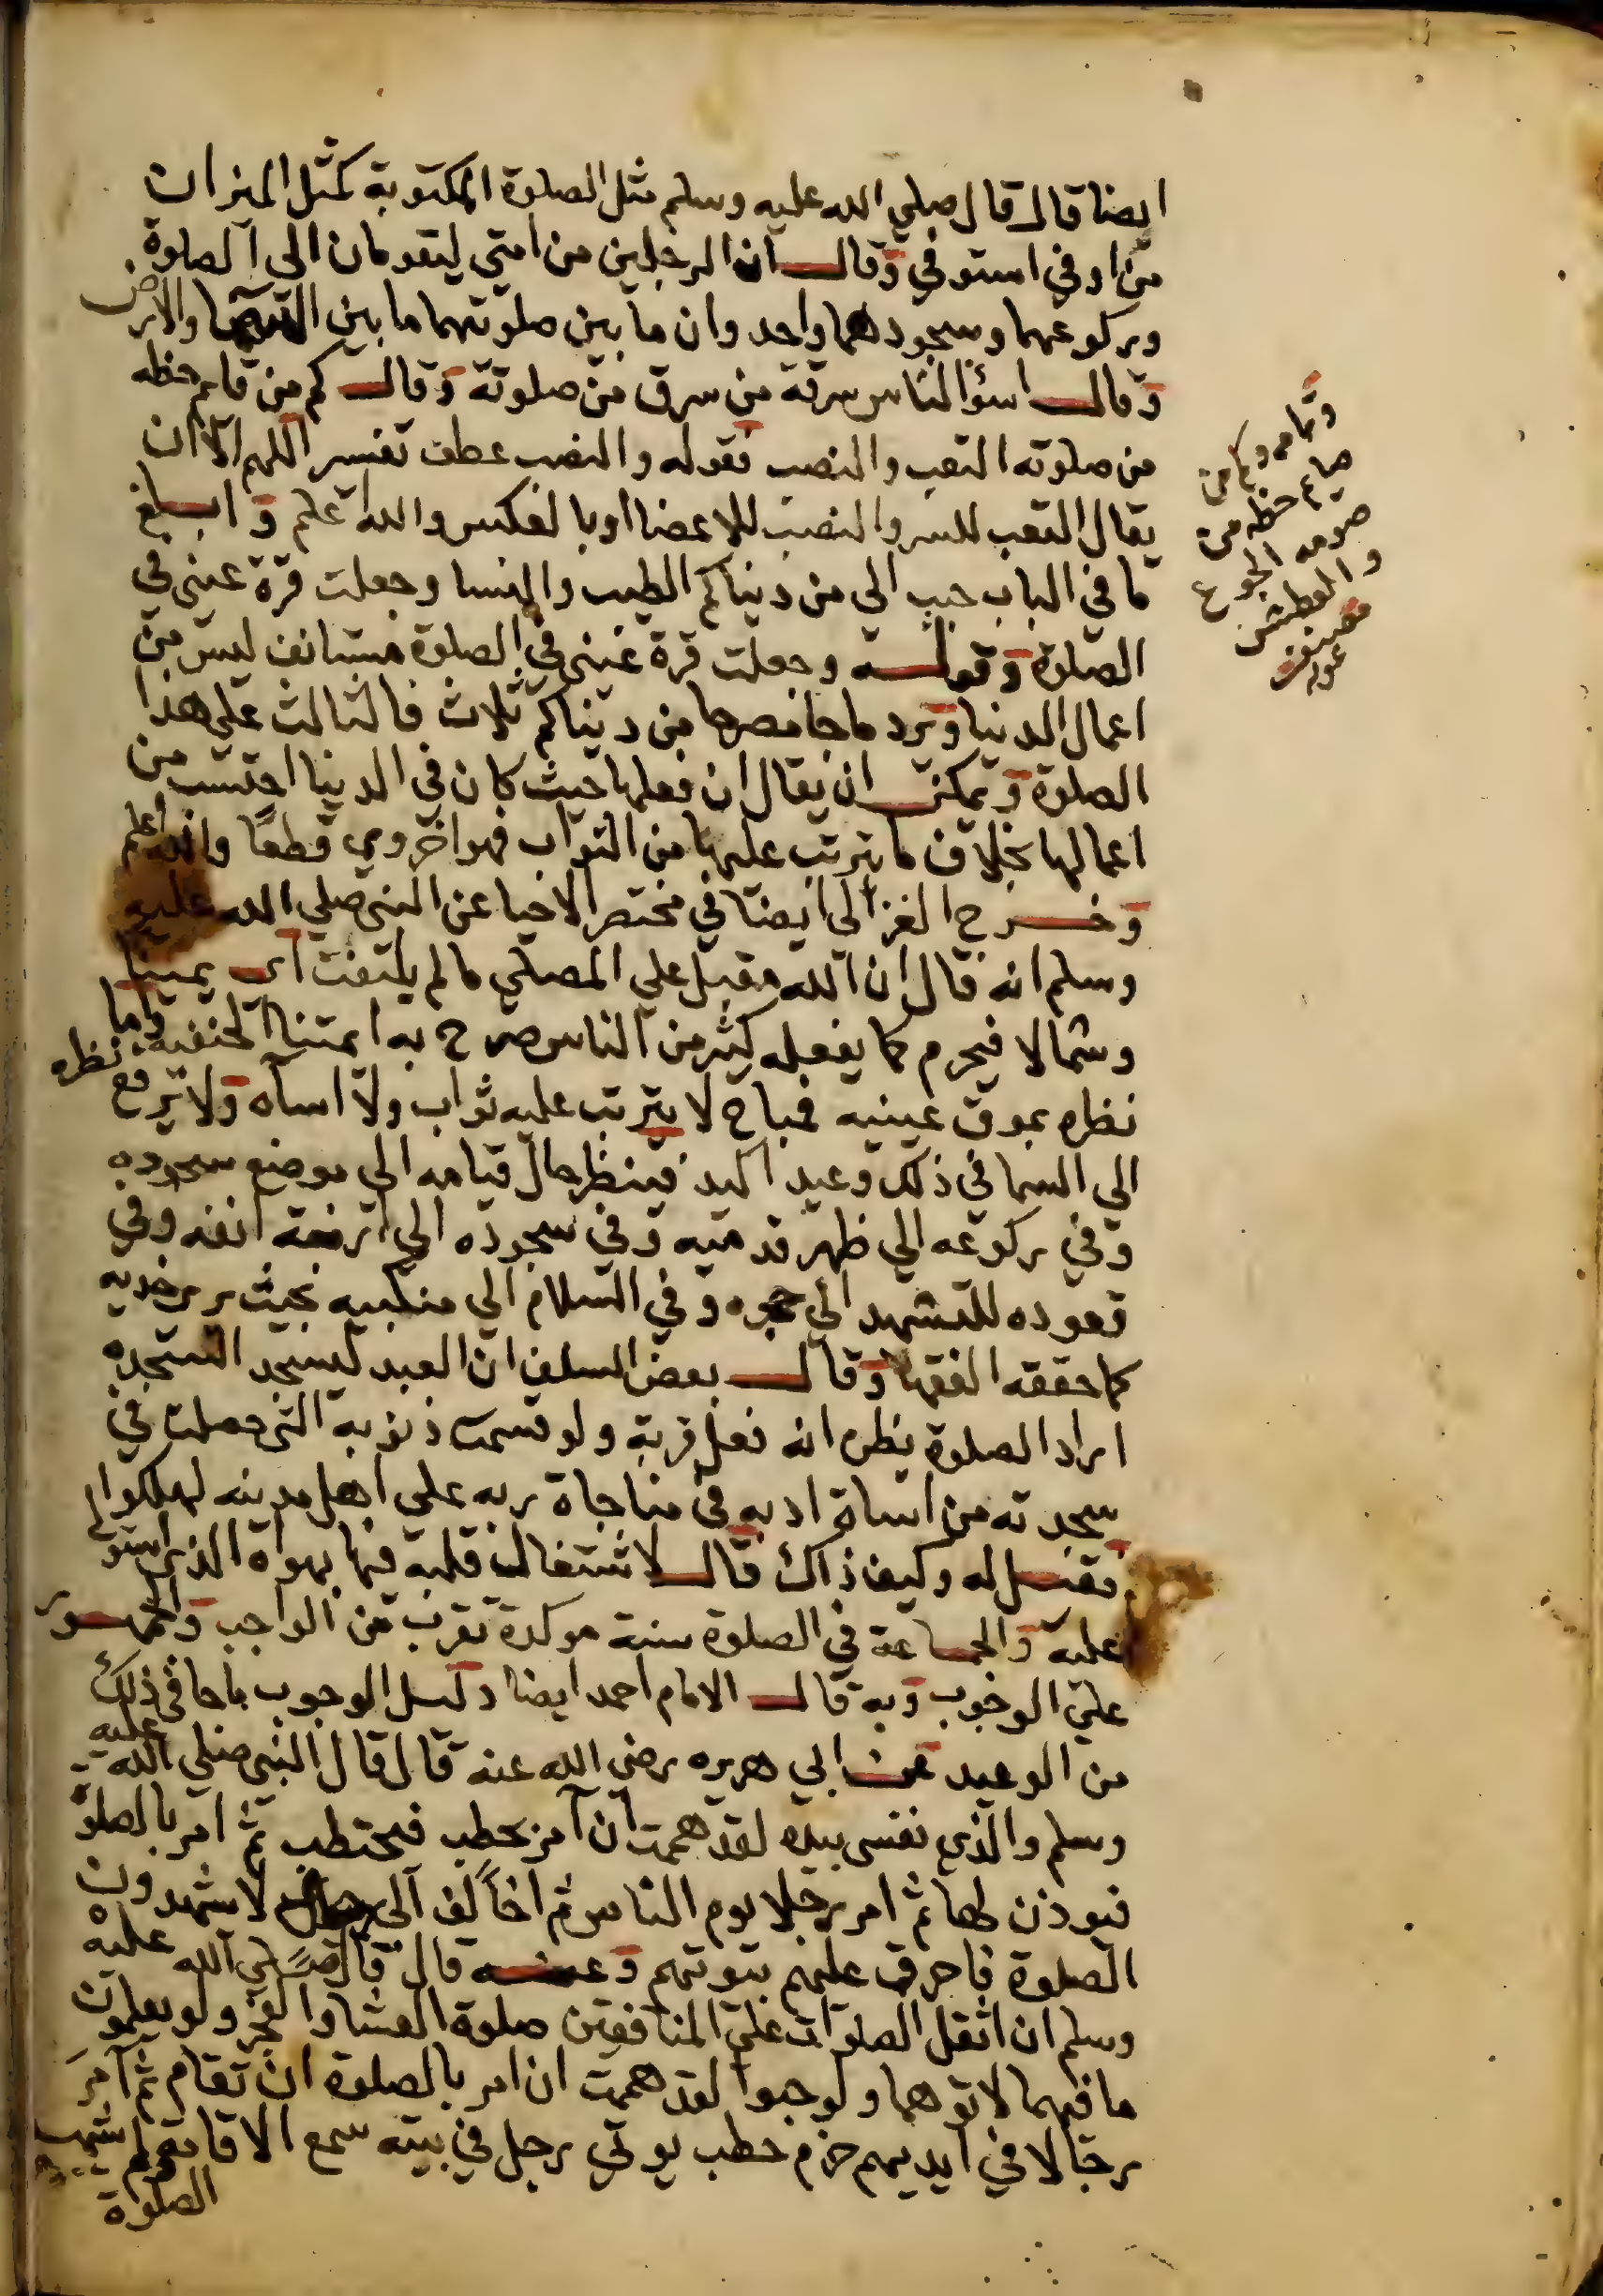 ايضا قال قال صلي الله عليه وسلم مثل الصلوة المكتوبة كمثل الميزان
من اوفي استوفي وقال ان الرجلين من امتي ليقومان الي الصلوة
وركوعهما وسجودهما واحد وان ما بين صلوتهما ما بين السما والارض
وقال اسؤ الناس سرقة من سرق من صلوته وقال كم من قايم حظه
من صلوته التعب والنصب فقوله والنصب عطف تفسير اللهم الا ان
يقال التعب للسر والنصب للاعضا او بالعكس والله اعلم وابلغ
ما في الباب حبب الي من دنياكم الطيب والنسا وجعلت قرة عيني في
الصلوة وقوله وجعلت قرة عيني في الصلوة مستانف ليس من
اعمال الدنيا ويرد ما جا مصرحا من دنياكم ثلاث فالثالث علي هذا
الصلوة ويمكن ان يقال ان فعلها حيث كان في الدنيا احتسب من
اعمالها بخلاف ما يترتب عليها من الثواب فهو اخروي قطعا والله اعلم
وخرج الغزالي ايضا في مختصر الاحيا عن النبي صلي الله عليه
وسلم انه قال ان الله مقبل علي المصلي ما لم يلتفت اي يمينا
وشمالا فيحرم كما يفعله كثير من الناس صرح به ايمتنا الحنفية واما
نظره بموق عينيه فباح لا يترتب عليه ثواب ولا اساه ولا يرفع نظره
الي السما في ذلك وعيد اكيد فينظر حال قيامه الي موضع سجوده
وفي ركوعه الي ظهر قدميه وفي سجوده الي ارنبة انفه وفي
قعوده للتشهد الي حجره وفي السلام الي منكبيه بحيث يري خديه
كما حققه الفقها وقال بعض السلف ان العبد ليسجد السجده
امراد الصلوة يظن انه فعل قربة ولو قسمت ذنوبه التي حصلت في
سجدته من اساة ادبه في مناجاة ربه علي اهل مدينه لهلكوا
فقيل له وكيف ذاك قال لاشتغال قلبه فيما يهواه الذي استولي
عليه والجماعة في الصلوة سنة موكدة تقرب من الواجب والجمهور
علي الوجوب وبه قال الامام احمد ايضا دليل الوجوب ما جا في ذلك
من الوعيد عن ابي هريره رضي الله عنه قال قال النبي صلي الله عليه
وسلم والذي نفسي بيده لقد هممت ان آمر بحطب فيحتطب ثم امر بالصلوة
فيوذن لها ثم امر رجلا يوم الناس ثم اخالف الي رجال لا يشهدون
الصلوة فاحرق عليهم بيوتهم وعنه قال قال صلي الله عليه
وسلم ان اثقل الصلوات علي المنافقين صلوة العشا والفجر ولو يعلمون
ما فيهما لاتوهما ولو حبوا لقد هممت ان امر بالصلوة ان تقام ثم آمر
رجالا في ايديهم حزم حطب يوتي رجل في بيته سمع الاقامة لم يشهد
الصلوة
وتمامه وكم من
صايم حظه من
صومه الجوع
والعطش